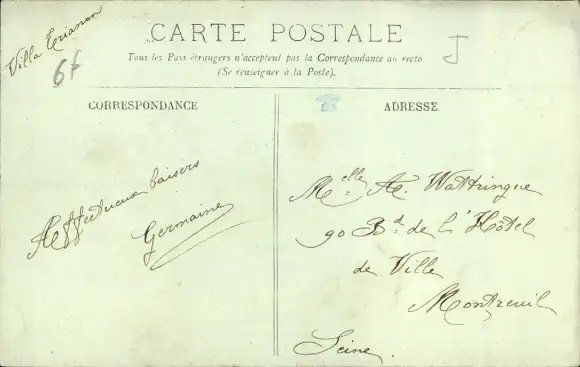 Villa Trianon
6f
J
CARTE POSTALE
Tous les Pays étrangers n'acceptent pas la Correspondance au recto
(Se renseigner à la Poste).
CORRESPONDANCE
ADRESSE
Affectueux baisers
Germaine
Melle A. Wattringue
90 Bd de l'Hôtel
de Ville
Montreuil
Seine.